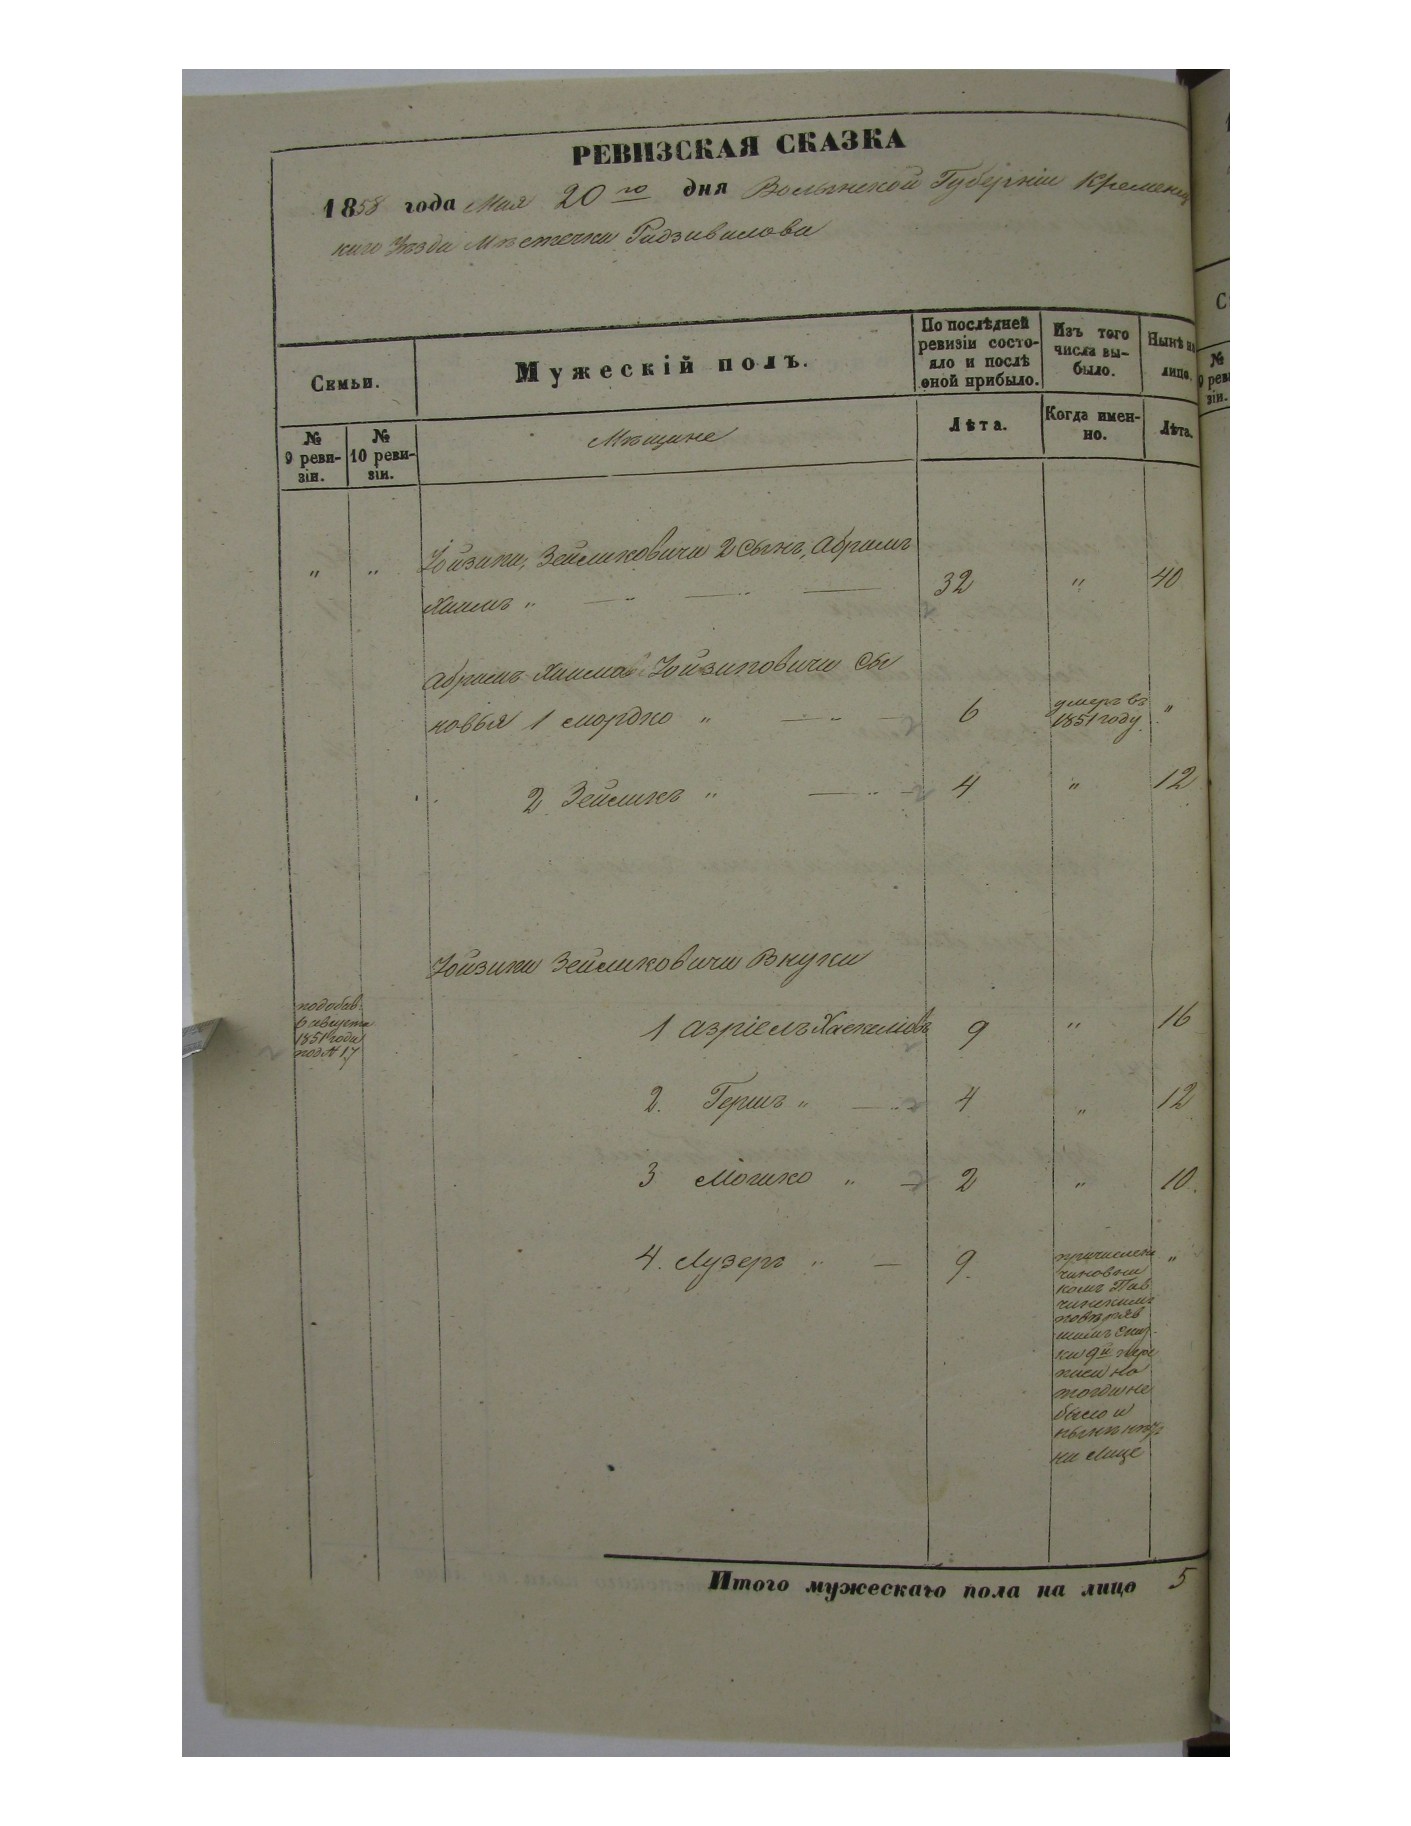 РЕВИЗСКАЯ СКАЗКА
1858 года Мая 20го дня Волынской Губерніи Кременец
каго Уѣзда Мѣстечка Радзивилова
Семьи.
Мужескій полъ.
По послѣдней ревизіи состо-
яло и послѣ
оной прибыло.
Изъ того
числа вы-
было.
Нынѣ на
лицо.
№
9 реви-
зіи.
№
10 реви-
зіи.
Мѣщане
Лѣта.
Когда имен-
но.
Лѣта.
" " Іойзика Зейликовича 2 Сынъ, Абрамъ
Хаимъ " 32 " 40
Абрамъ Хаима Іойзиковича Сы
новья 1 Мордко " 6 умеръ въ
1851 году "
2 Зейликъ " 4 " 12
Іойзика Зейликовича Внуки
подобав.
6 августа
1851 года
под № 17
1 Азріель Хаскилiовъ 9 " 16
2. Герш " 4 " 12
3 Мошко " 2 " 10.
4. Лузеръ " 9. "
причислен
чиновни
комъ
повѣряв
шимъ
ки 9й пере
писи но
тогда не
было и
нынѣ нѣтъ
на лице
Итого мужескаго пола на лицо 5
С
№
9 реви
зіи.